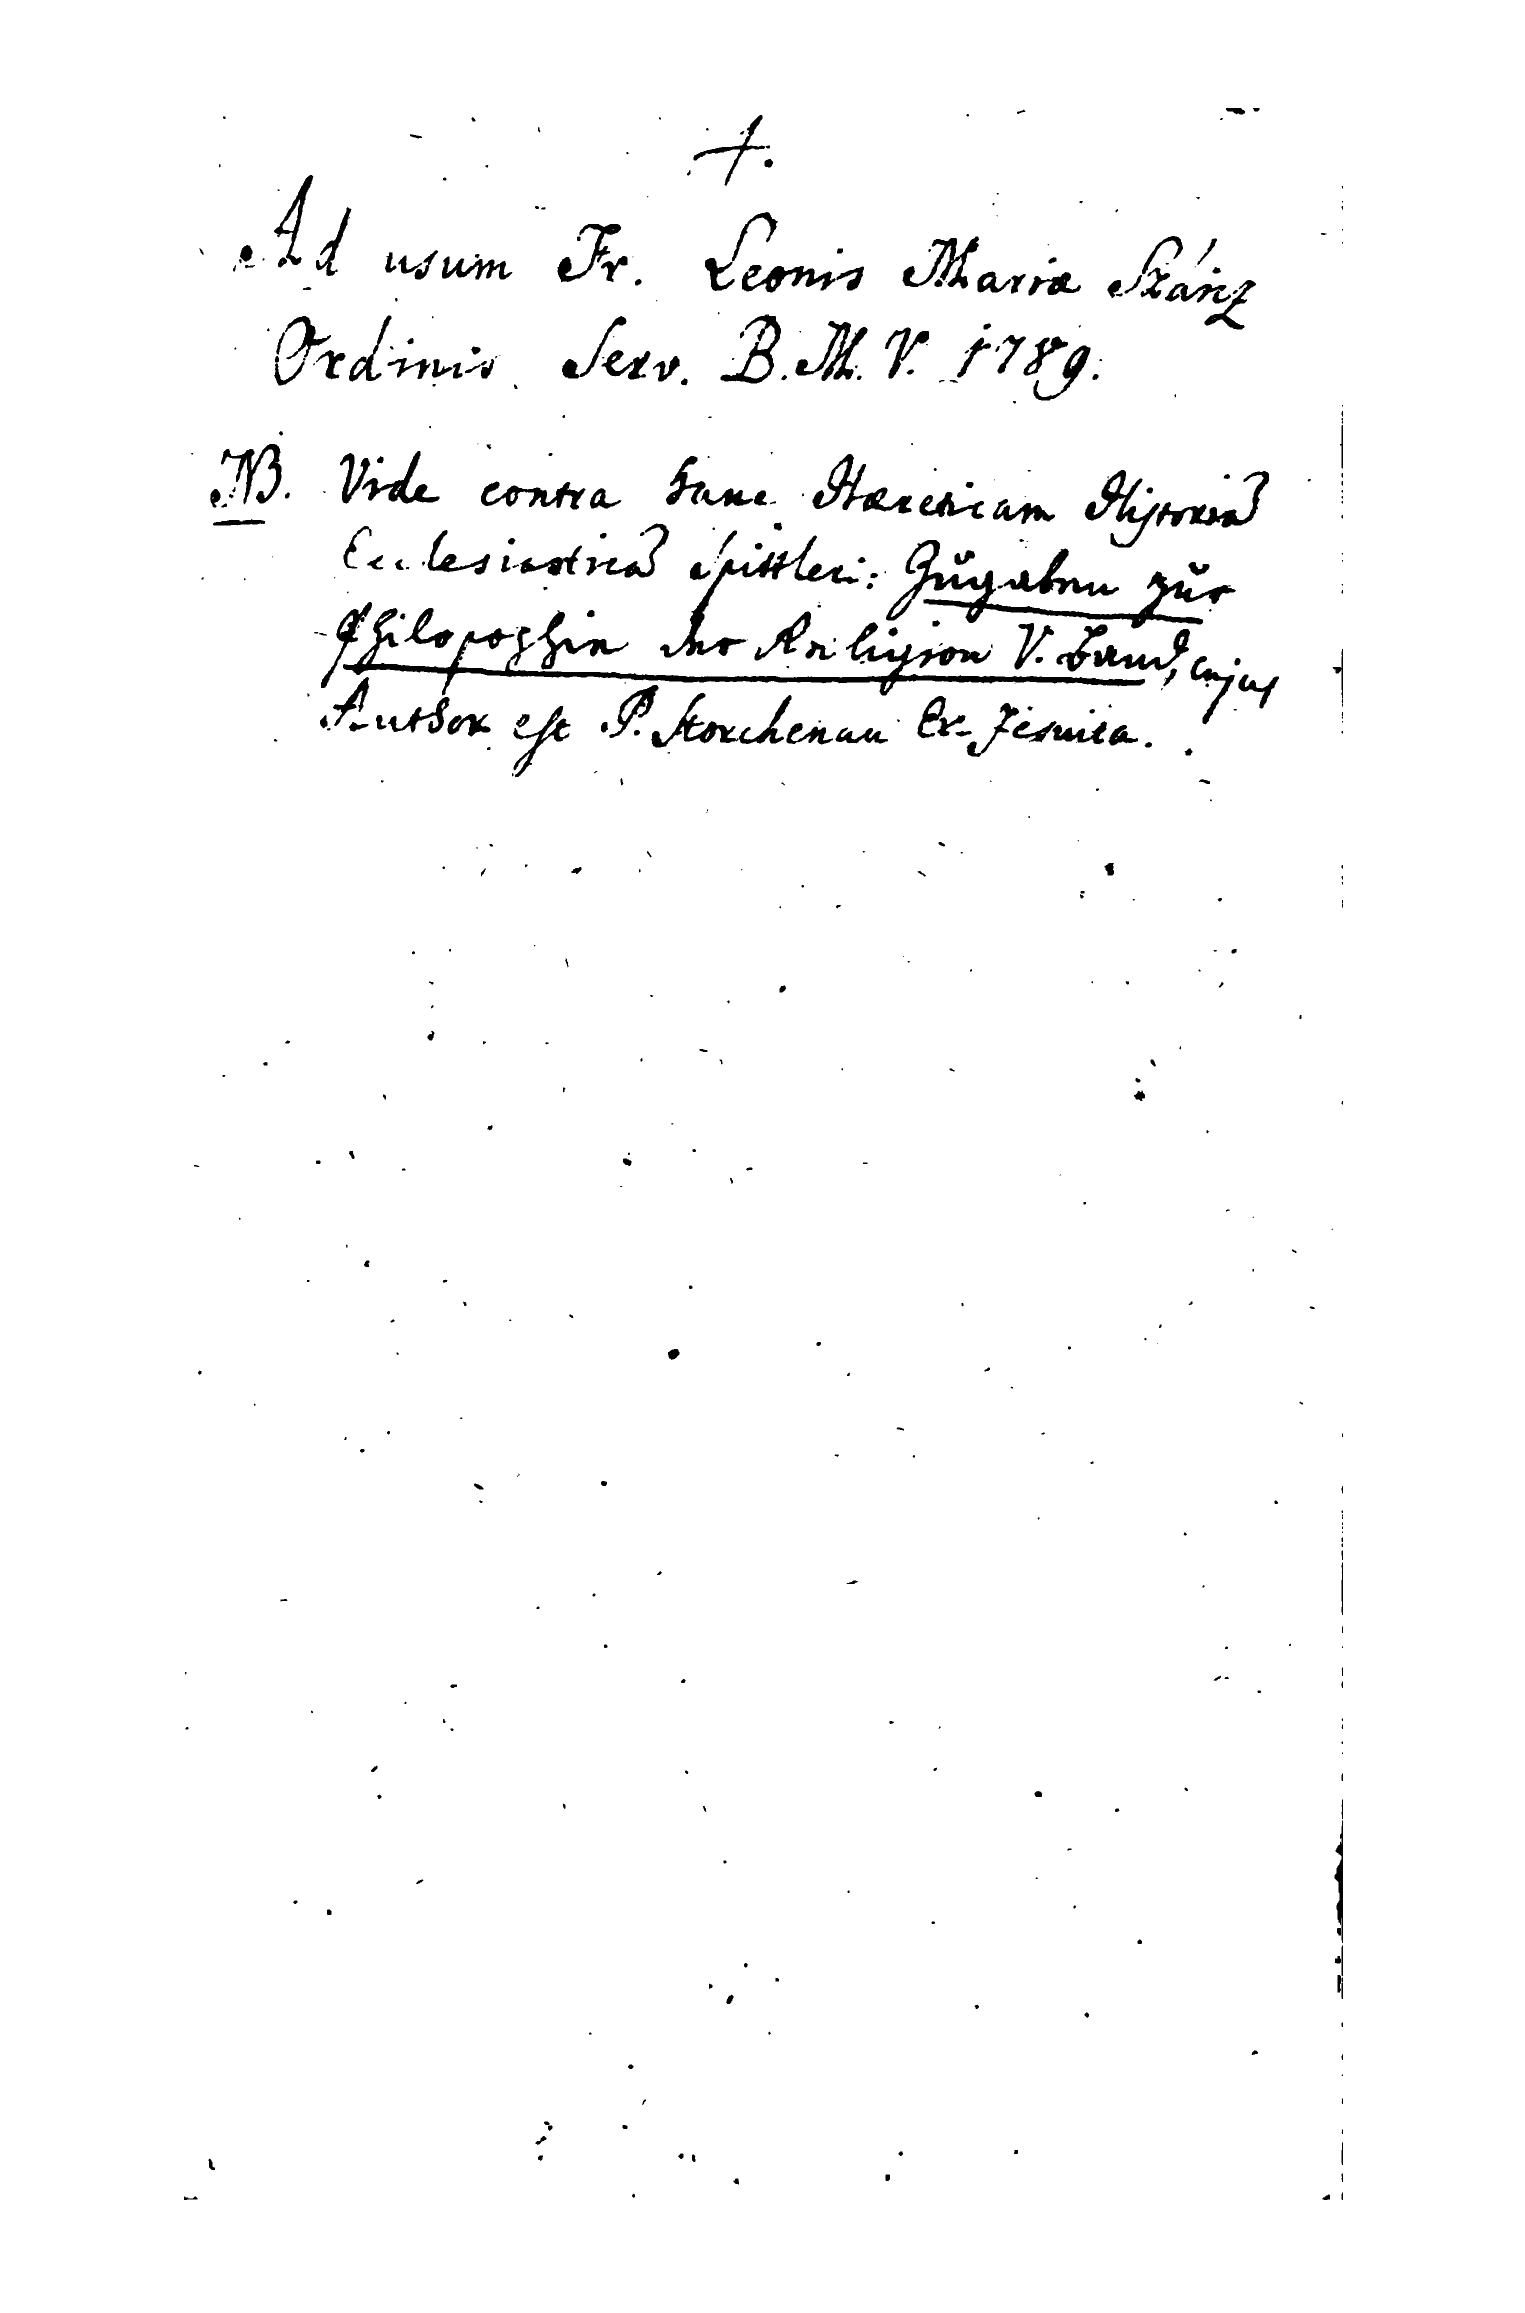 †.
Ad usum Fr. Leonis Mariæ Száriz
Ordinis Serv. B. M. V. 1789.
NB. Vide contra hanc Hæreticam Historiã
Ecclesiasticã Spittleri: Zŭgaben zŭr
Philosophie der Religion V. Band, cujus
Author est P. Storchenau Ex-Jesuita.